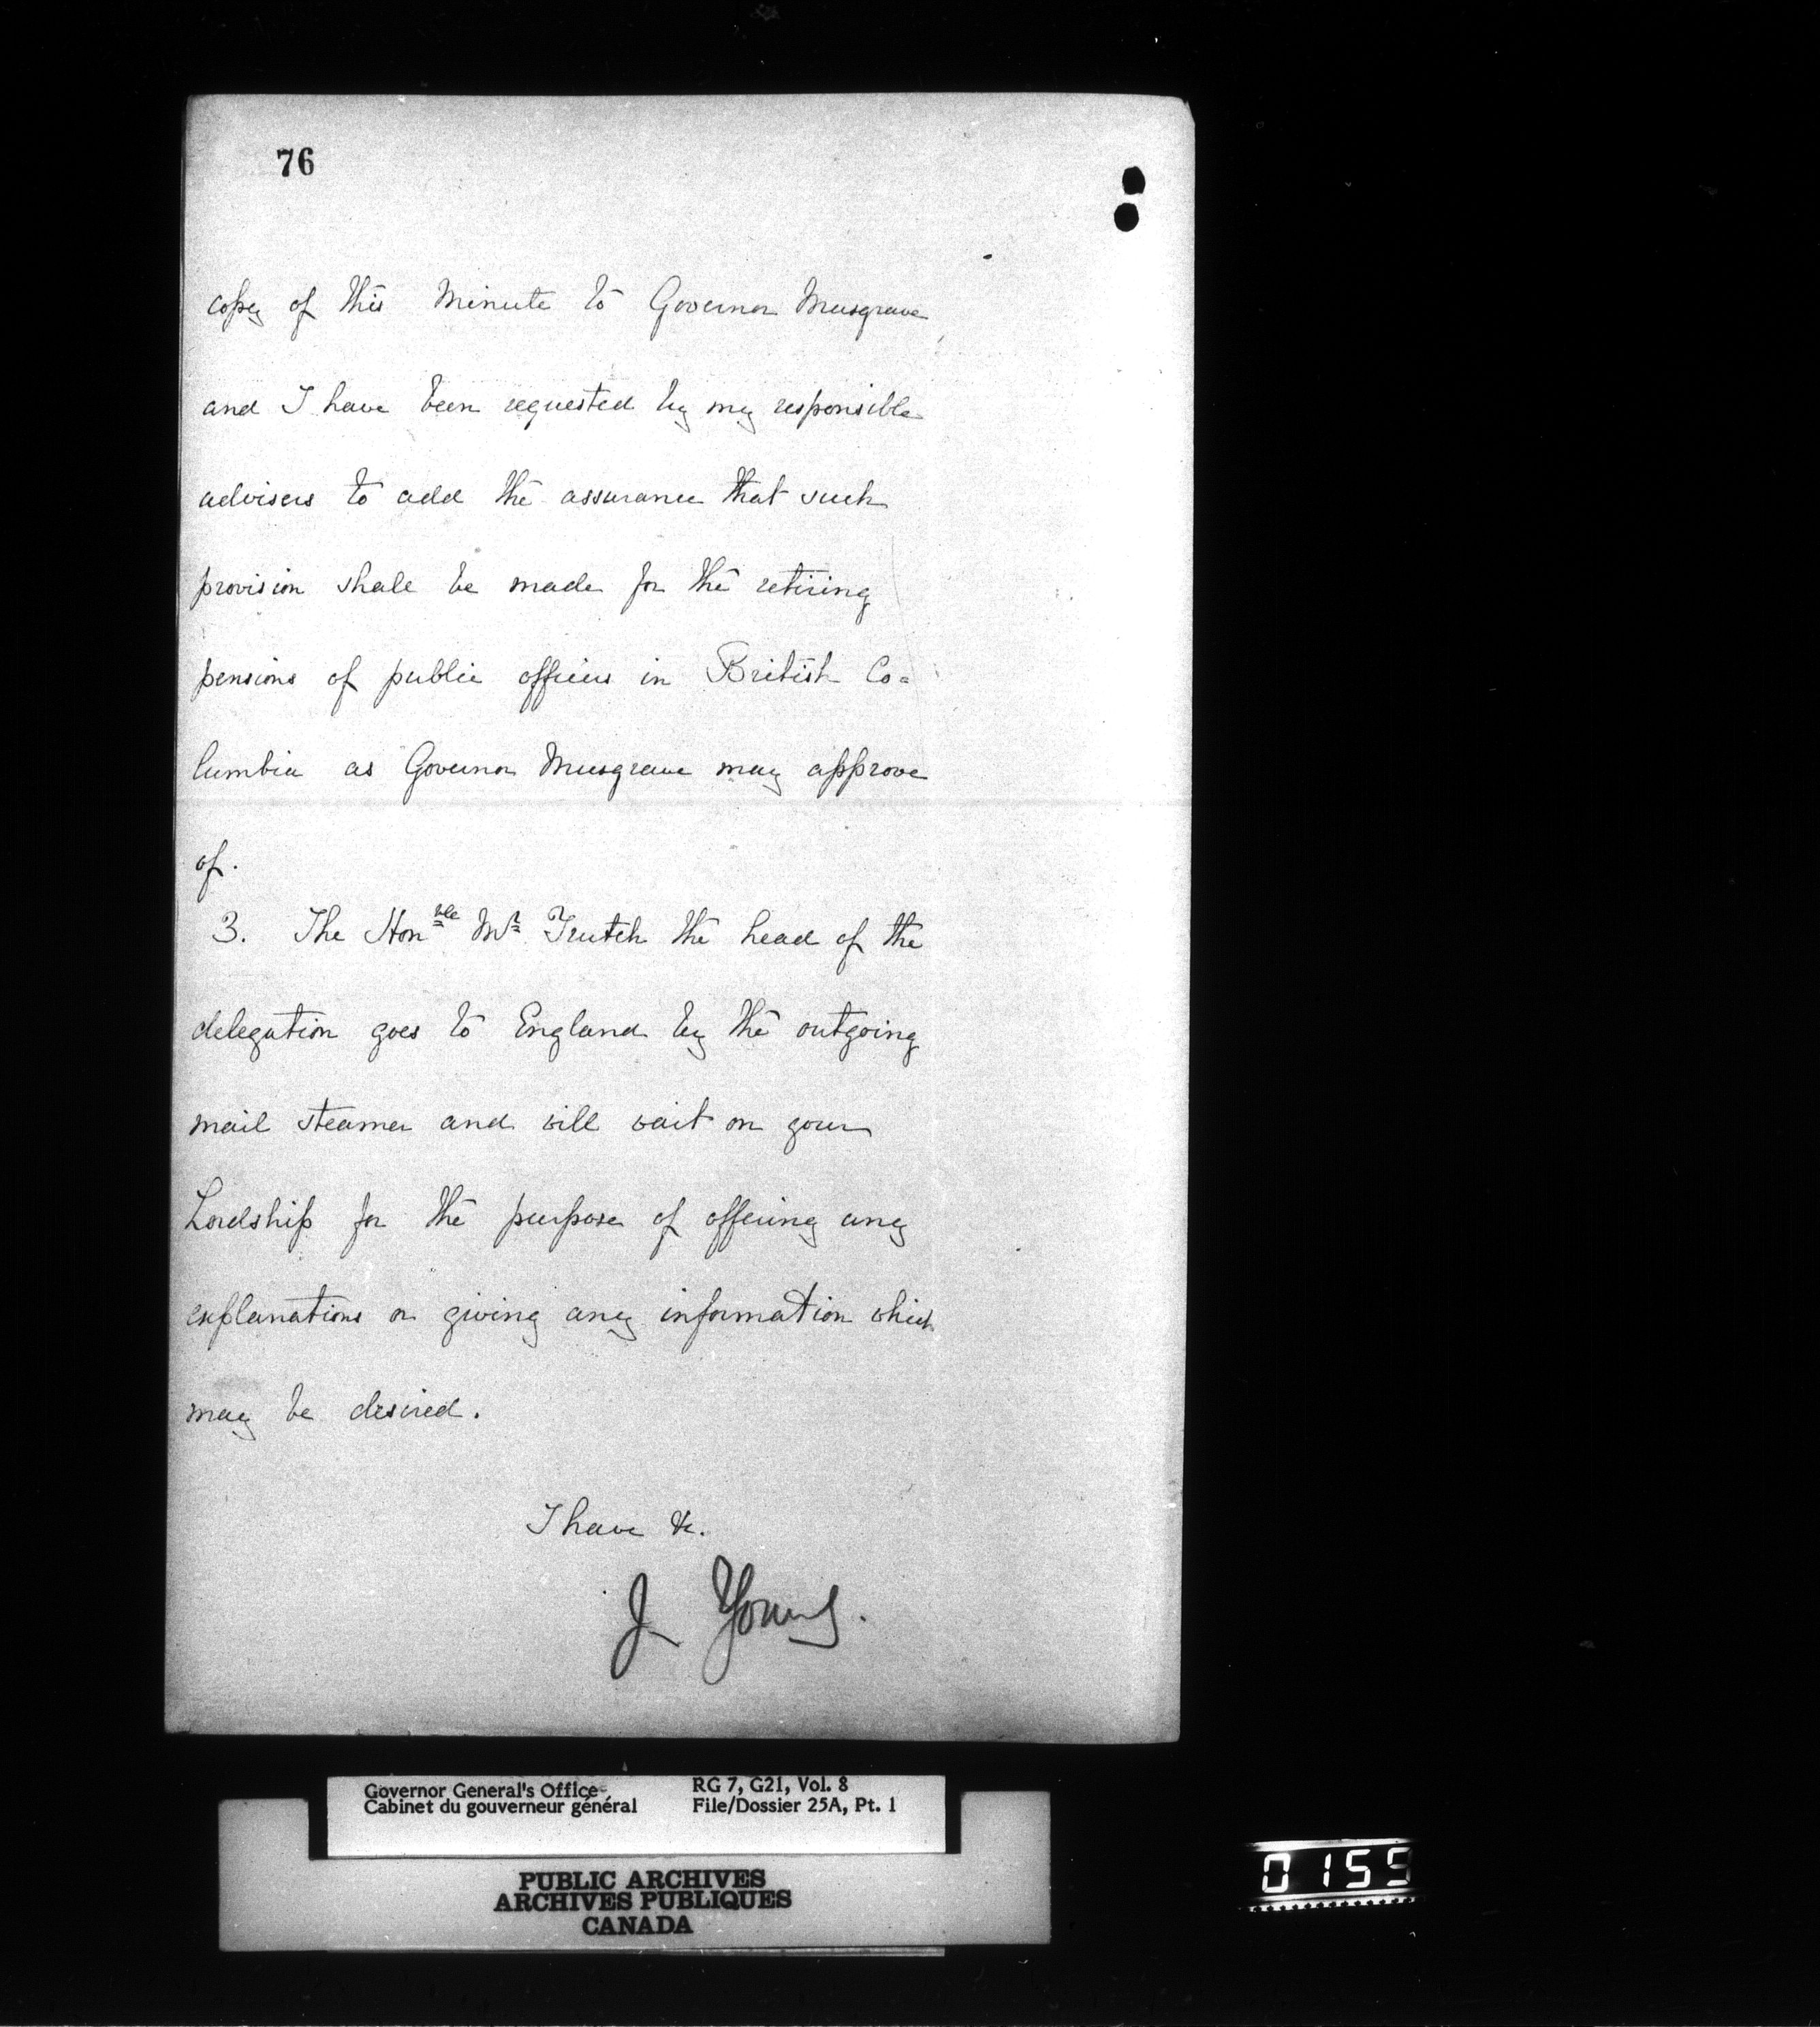 76
copy of this Minute to Governor Musgrave,
and I have been requested by my responsible
advisers to add the assurance that such
provision shall be made for the retiring
pensions of public officers in British Co=
lumbia as Governor Musgrave may approve
of.
3. The Honble Mr Trutch the head of the
delegation goes to England by the outgoing
mail steamer and will wait on your
Lordship for the purpose of offering any
explanations or giving any information which
may be desired.
I have &c.
J Young.
Governor General's Office
Cabinet du gouverneur général
RG 7, G21, Vol. 8
File/Dossier 25A, Pt. 1
PUBLIC ARCHIVES
ARCHIVES PUBLIQUES
CANADA
0155